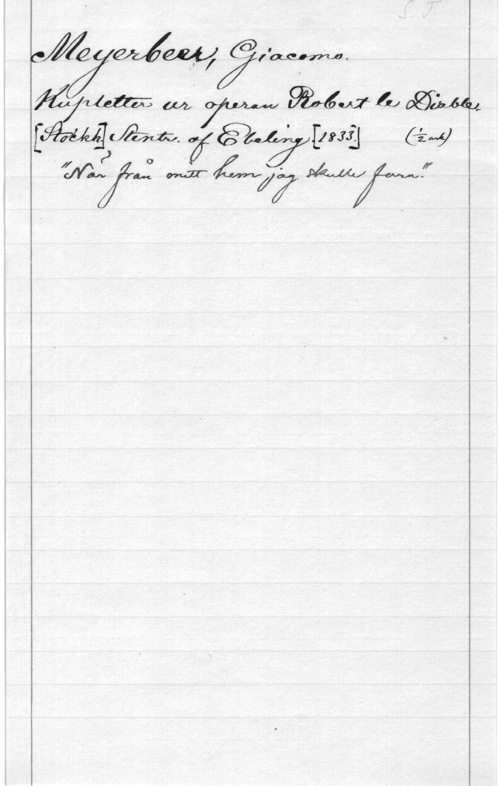 S T.
Meyerbeer, Giacomo.
Kupletter ur operan Robert le Diable,
[Stockh.] Stentr. af Ebeling. [1833] (½ ark)
"När från mitt hem jag skulle fara."